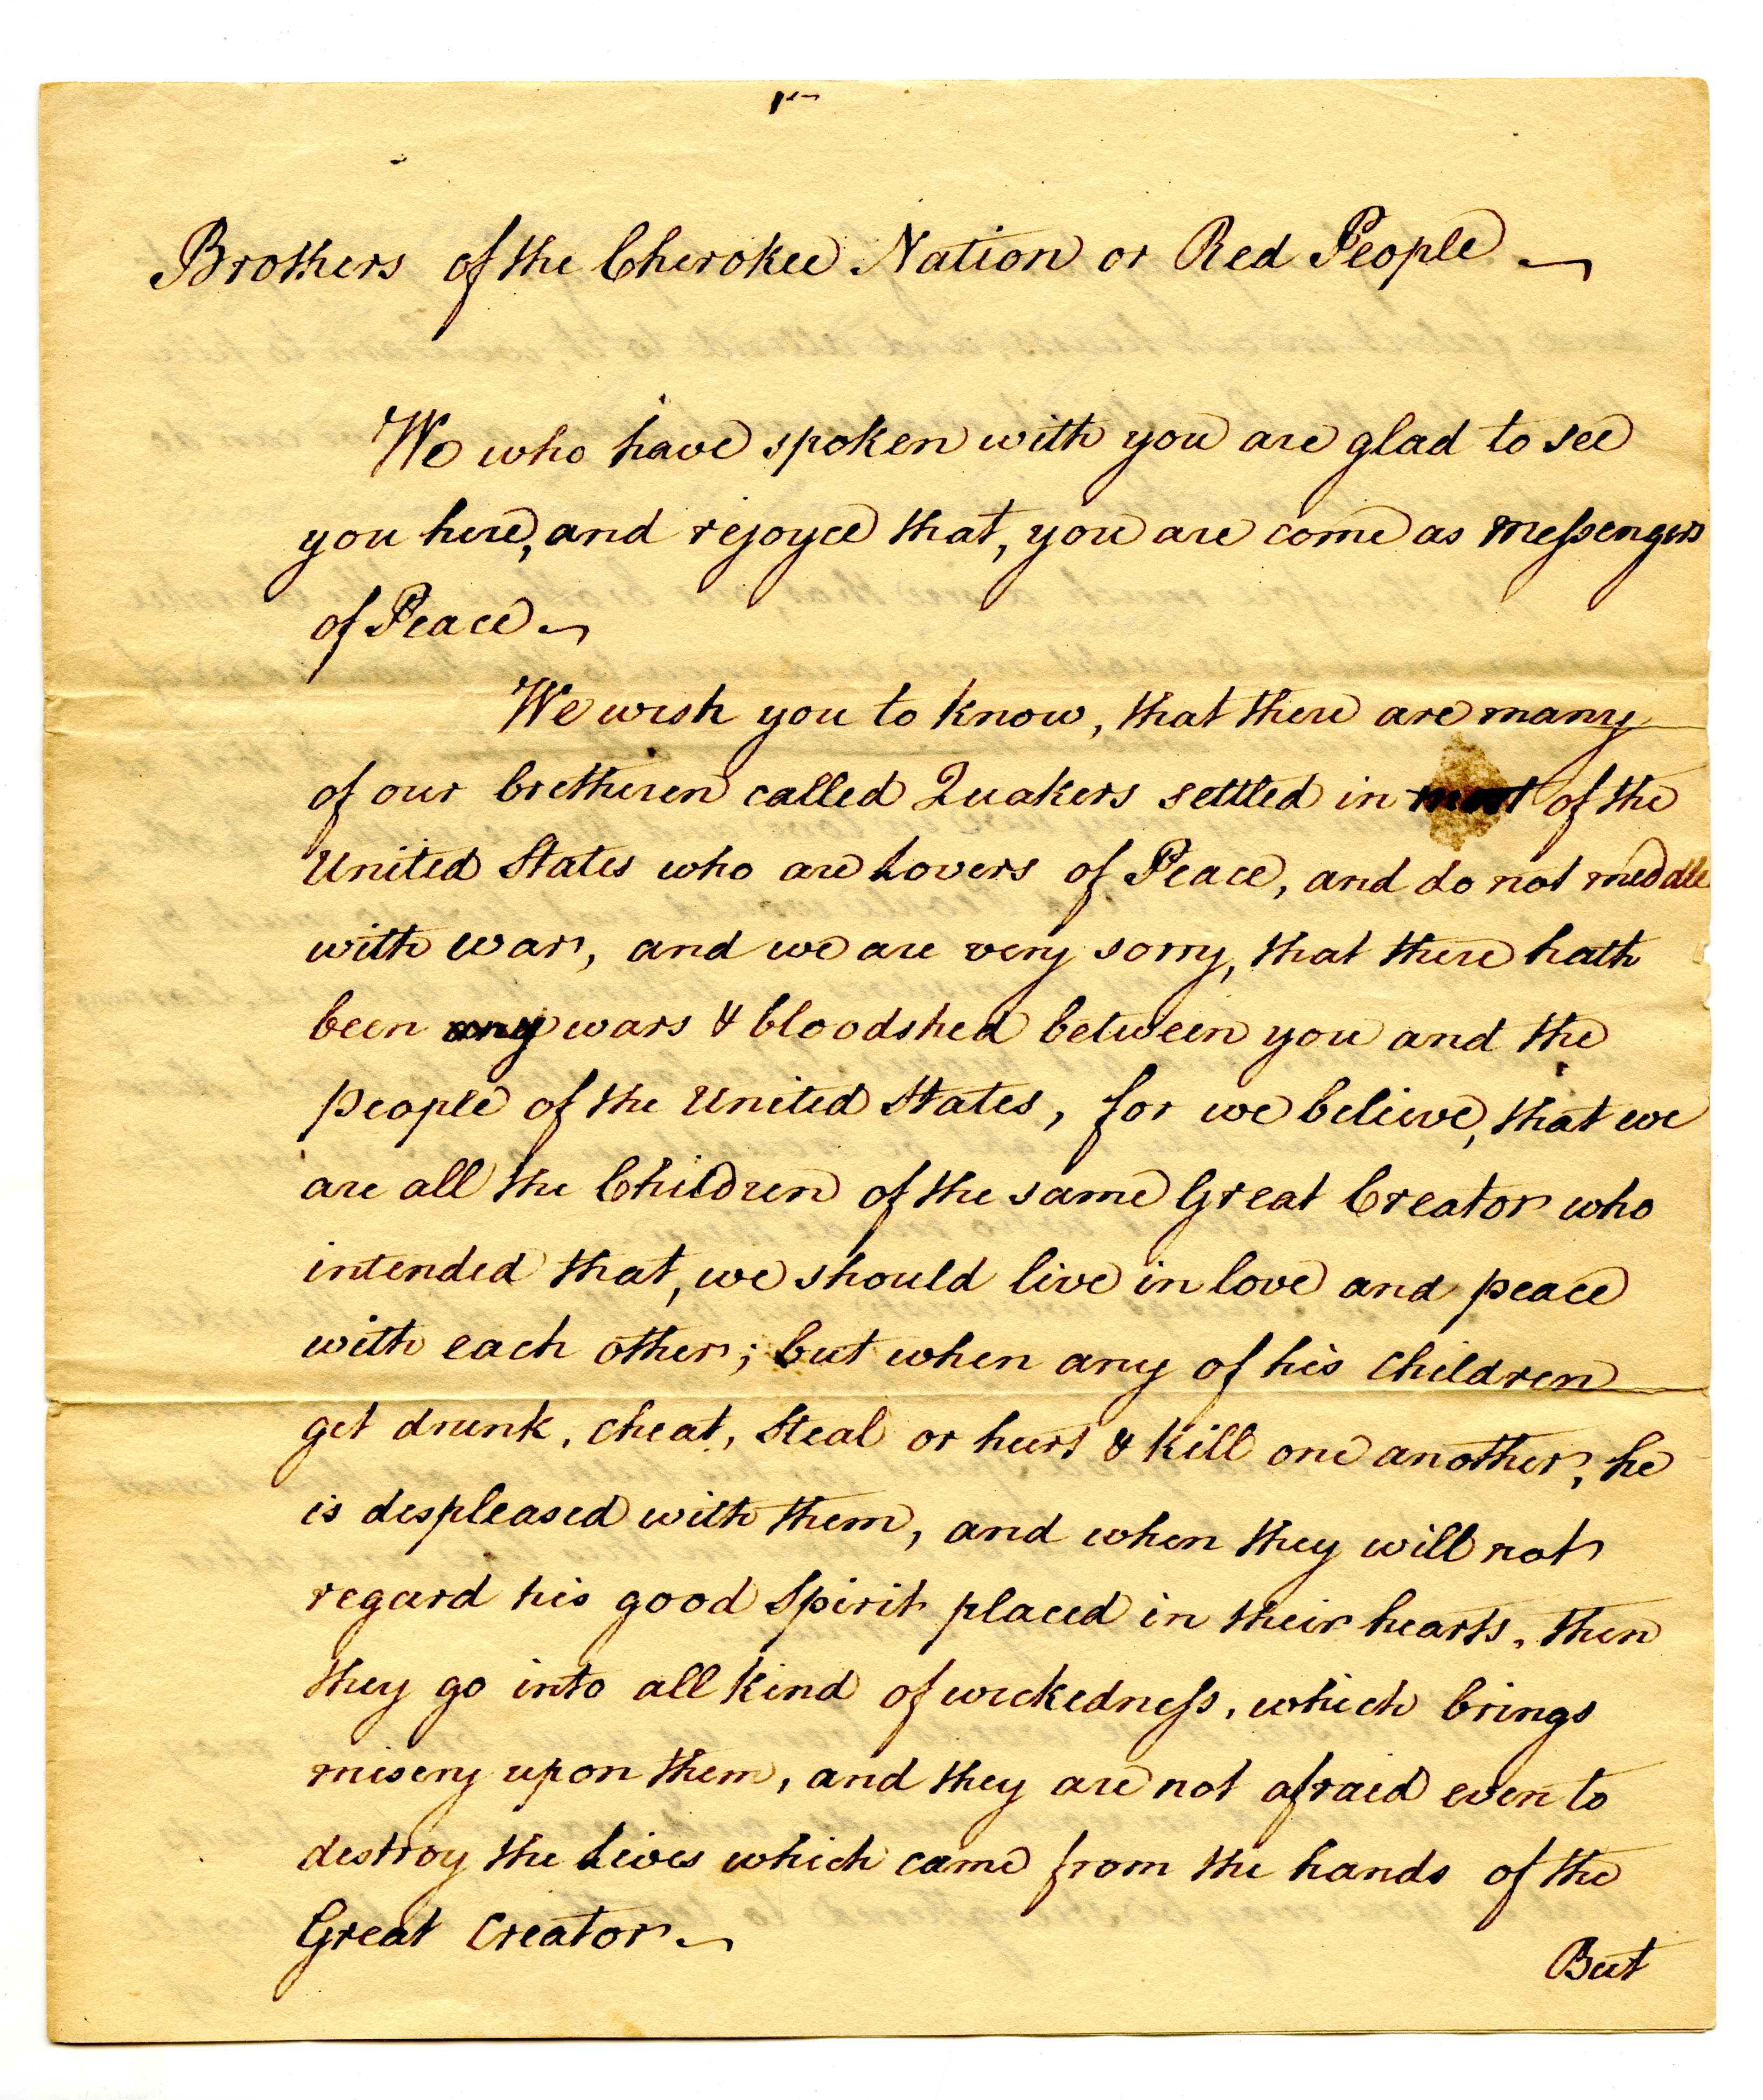 Brothers of the Cherokee Nation or Red People
We who have spoken with you are glad to see
you here, and rejoyce that, you are come as Messengers
of Peace
We wish you to know, that there are many
of our bretheren called Quakers settled in most of the
United States who are Lovers of Peace, and do not meddle
with war, and we are very sorry, that there hath
been any wars & bloodshed between you and the
people of the United States, for we believe, that we
are all the Children of the same Great Creator who
intended that, we should live in love and peace
with each other; but when any of his Children
get drunk, cheat, Steal or hurt & kill one another, he
is despleased with them, and when they will not
regard his good Spirit placed in their hearts, then
they go into all kind of wickedness, which brings
misery upon them, and they are not afraid even to
destroy the Lives which came from the hands of the
Great Creator
But